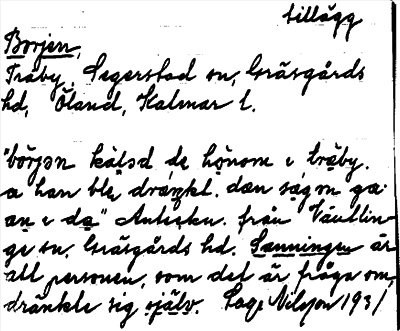 tillägg
Börjen,
Träby, Segerstad sn, Gräsgårds
hd, Öland, Kalmar l.
"börjən kåləd de hönom i bräby.
a han ble dränkt. dan sågm ga
an i da" Anteckn. från Väntlin-
ge sn, Gräsgårds hd. Sanningen är
att personen, som det är fråga om,
dränkte sig själv. Lage Nilsson 1931